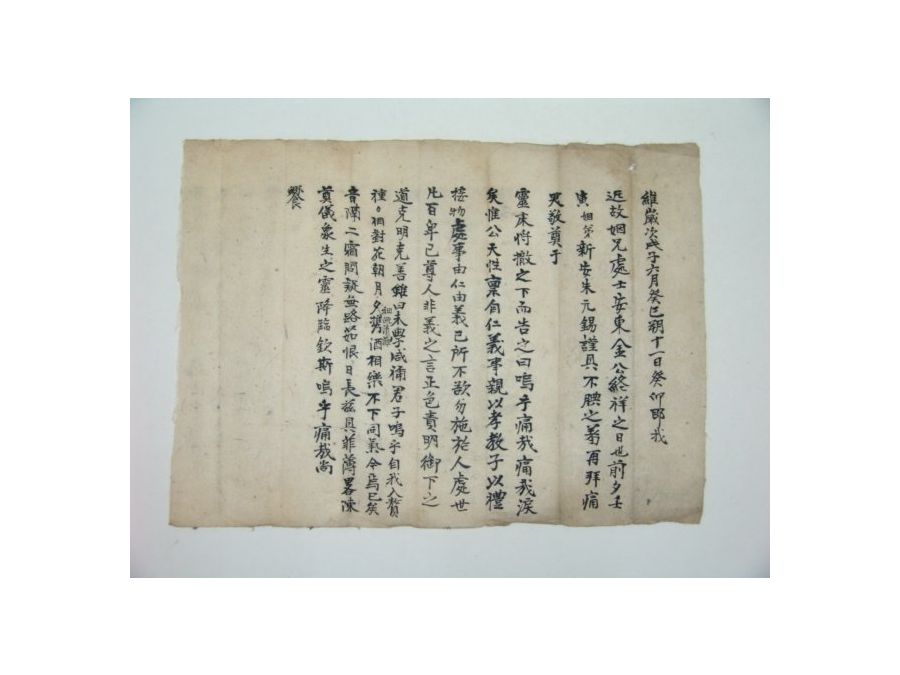 維歲次戊子六月癸巳朔十一日癸卯即我
近故姻兄處士安東金公終祥之日也前夕壬
寅姻弟新安朱元錫謹具不腆之羞再拜痛
哭敬奠于
靈床將撤之下而告之曰嗚乎痛哉痛哉淚
矣惟公天性稟自仁義事親以孝敎子以禮
接物處事由仁由義己所不欲勿施於人處世
凡百卑己尊人非義之言正色責明御下之
道克明克善雖曰未學咸稱君子嗚乎自我入贅
種〃相對花朝月夕携酒相樂不下同氣今焉已矣
音隔二霜問疑無路茹恨日長玆具菲薄畧陳
奠儀象生之靈降臨歆斯嗚乎痛哉尚
饗